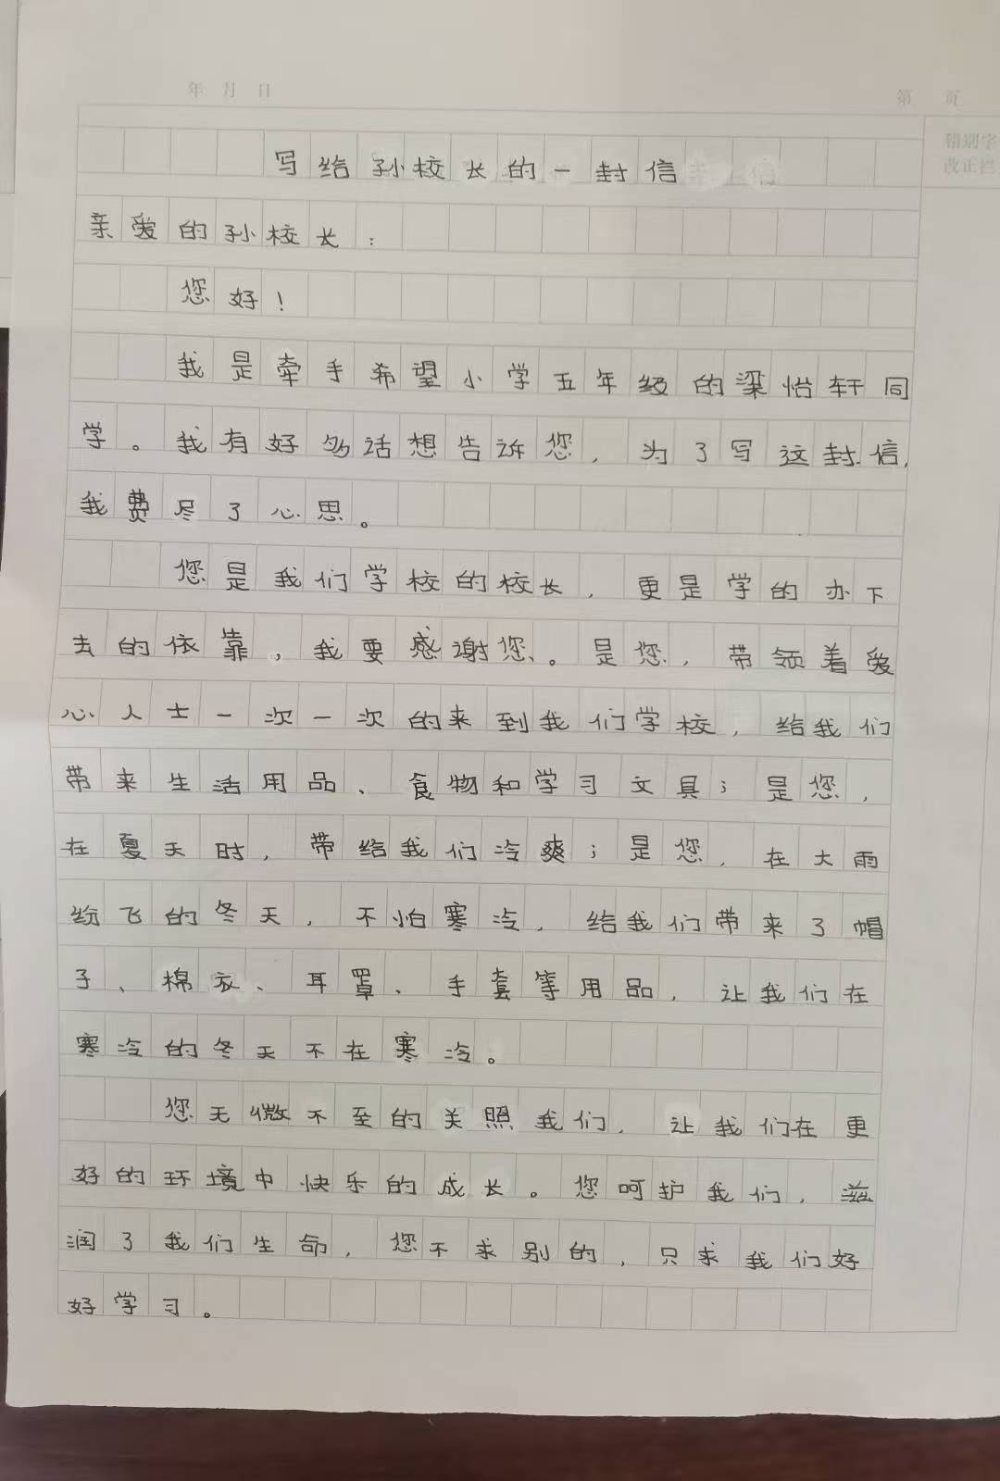 年 月 日
第 页
错别字
改正栏
写给孙校长的一封信
亲爱的孙校长：
您好！
我是牵手希望小学五年级的梁怡轩同
学。我有好多话想告诉您，为了写这封信，
我费尽了心思。
您是我们学校的校长，更是学的办下
去的依靠，我要感谢您、。是您，带领着爱
心人士一次一次的来到我们学校，给我们
带来生活用品、食物和学习文具；是您，
在夏天时，带给我们冷爽；是您，在大雨
纷飞的冬天，不怕寒冷，给我们带来了帽
子、棉衣、耳罩、手套等用品，让我们在
寒冷的冬天不在寒冷。
您无微不至的关照我们，让我们在更
好的环境中快乐的成长。您呵护我们，滋
润了我们生命，您不求别的，只求我们好
好学习。